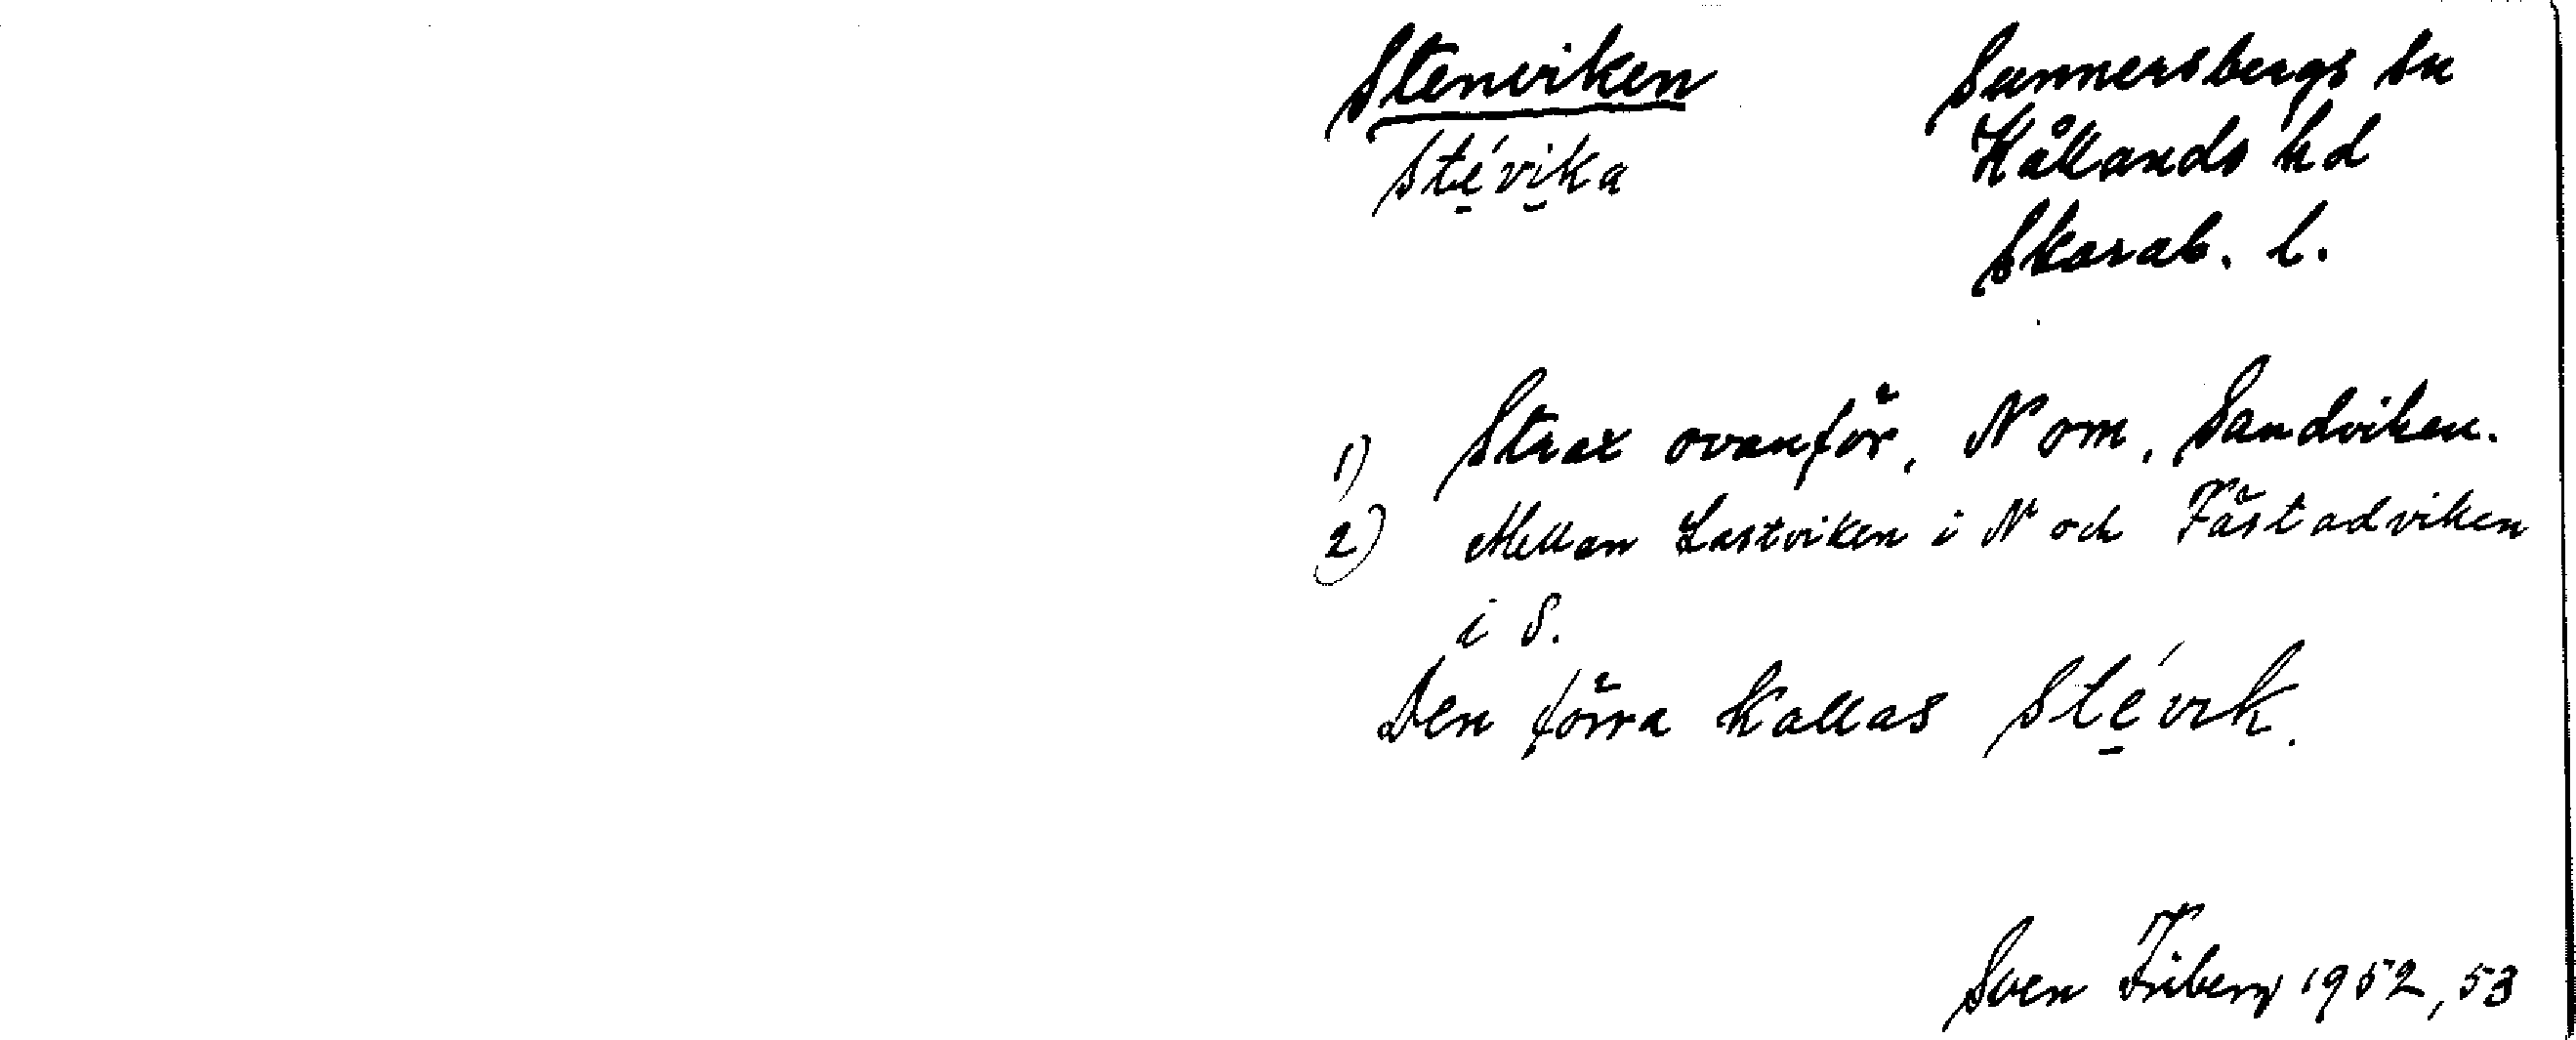 Stenviken
Sunnersbergs sn
stévika
Kållands hd
Skarab. l.
1) Strax ovanför, N om, Sandviken.
2) Mellan Lastviken i N och Fästadviken
i S.
Den förra kallas stévik.
Sven Friberg 1952, 53